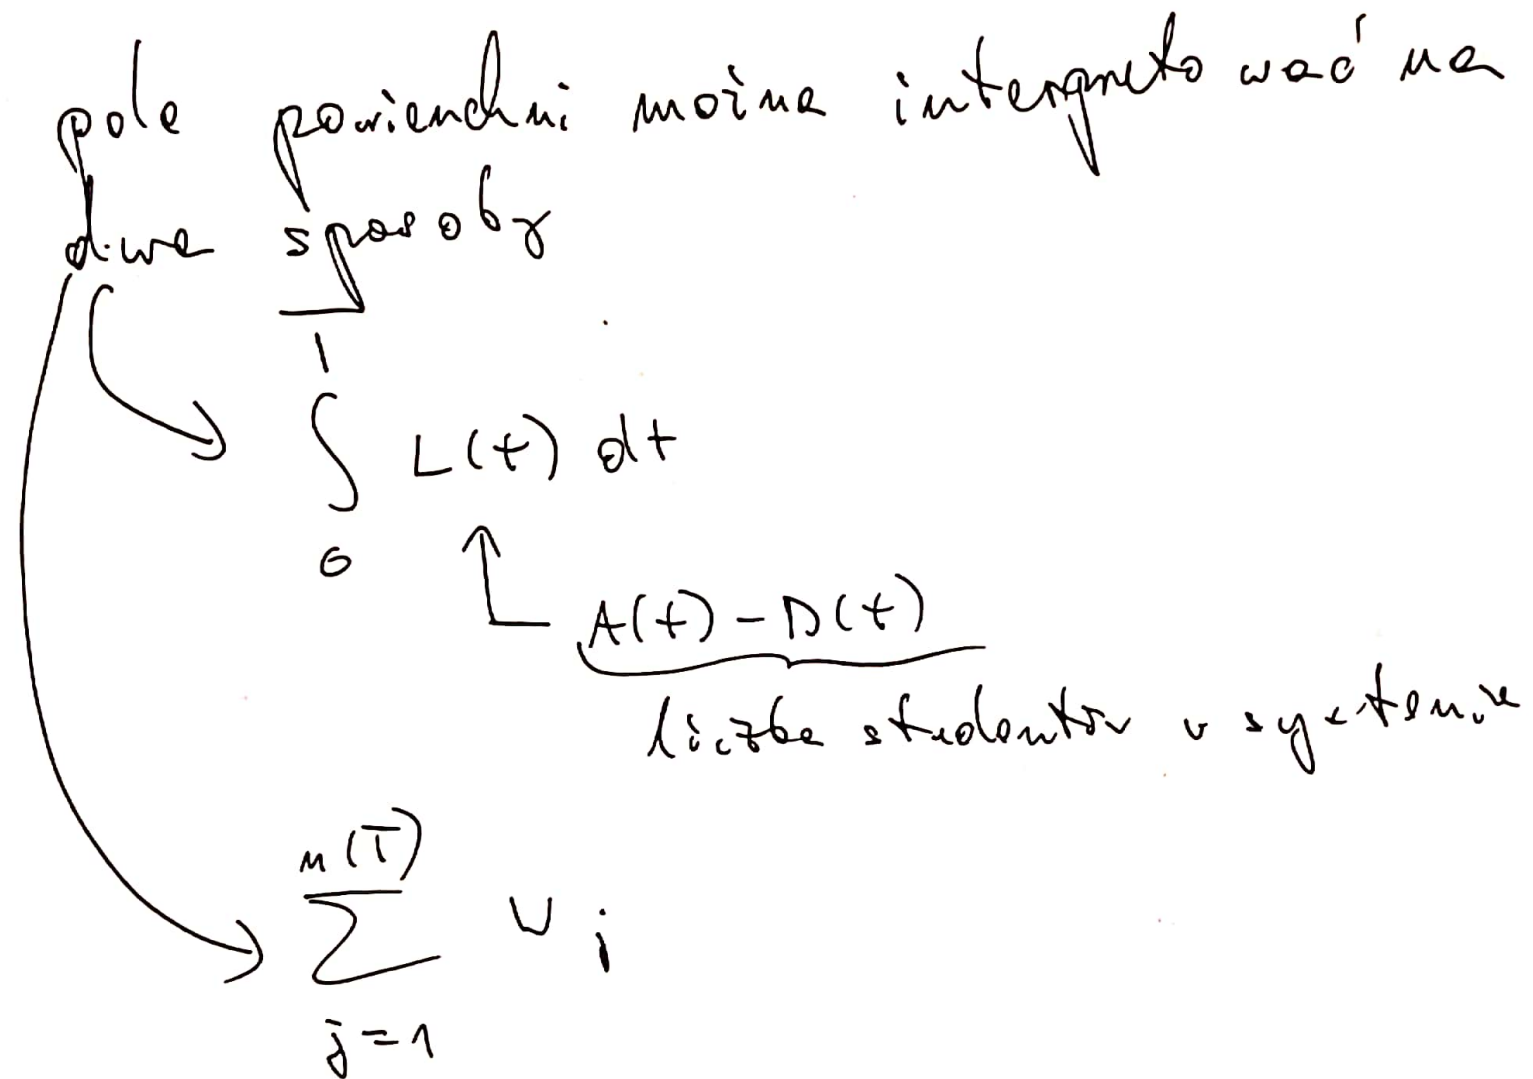 pole powierzchni można interpretować na
dwa sposoby
T
∫ L(t) dt
0
A(t) - D(t)
liczba studentów w systemie
n(T)
∑ W j
j=1